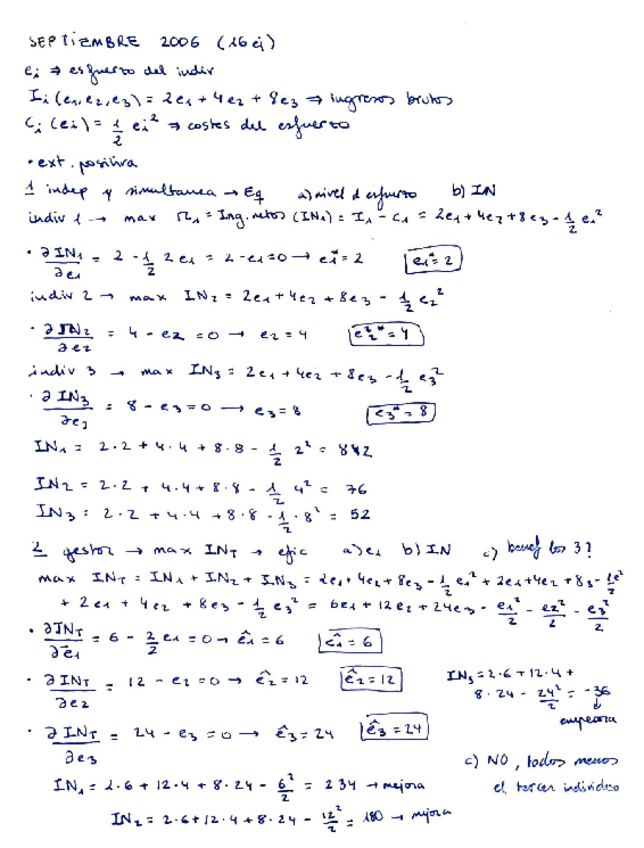 SEPTIEMBRE 2006 (16 ej)
ei ⇒ esfuerzo del indiv
Ii (e1,e2,e3) = 2e1 + 4e2 + 8e3 ⇒ ingresos brutos
Ci (ei) = 1/2 ei² ⇒ costes del esfuerzo
• ext. positiva
1 indep y simultanea → Eq a) nivel d esfuerzo b) IN
indiv 1 → max Π1 = Ing. netos (IN1) = I1 - C1 = 2e1 + 4e2 + 8e3 - 1/2 e1²
• ∂IN1/∂e1 = 2 - 1/2 2e1 = 2 - e1 = 0 → e1* = 2 e1* = 2
indiv 2 → max IN2 = 2e1 + 4e2 + 8e3 - 1/2 e2²
• ∂IN2/∂e2 = 4 - e2 = 0 → e2 = 4 e2* = 4
indiv 3 → max IN3 = 2e1 + 4e2 + 8e3 - 1/2 e3²
• ∂IN3/∂e3 = 8 - e3 = 0 → e3 = 8 e3* = 8
IN1 = 2·2 + 4·4 + 8·8 - 1/2 2² = 82
IN2 = 2·2 + 4·4 + 8·8 - 1/2 4² = 76
IN3 = 2·2 + 4·4 + 8·8 - 1/2 · 8² = 52
2 gestor → max INT → efic a) ei b) IN c) benef los 3?
max INT = IN1 + IN2 + IN3 = 2e1 + 4e2 + 8e3 - 1/2 e1² + 2e1 + 4e2 + 8e3 - 1/2 e²
+ 2e1 + 4e2 + 8e3 - 1/2 e3² = 6e1 + 12e2 + 24e3 - e1²/2 - e2²/2 - e3²/2
• ∂INT/∂e1 = 6 - 2/2 e1 = 0 → ê1 = 6 ê1 = 6
• ∂INT/∂e2 = 12 - e2 = 0 → ê2 = 12 ê2 = 12
IN3 = 2·6 + 12·4 +
8·24 - 24²/2 = -36
↓
empeora
• ∂INT/∂e3 = 24 - e3 = 0 → ê3 = 24 ê3 = 24
c) NO, todos menos
el tercer individuo
IN1 = 2·6 + 12·4 + 8·24 - 6²/2 = 234 → mejora
IN2 = 2·6 + 12·4 + 8·24 - 12²/2 = 180 → mejora